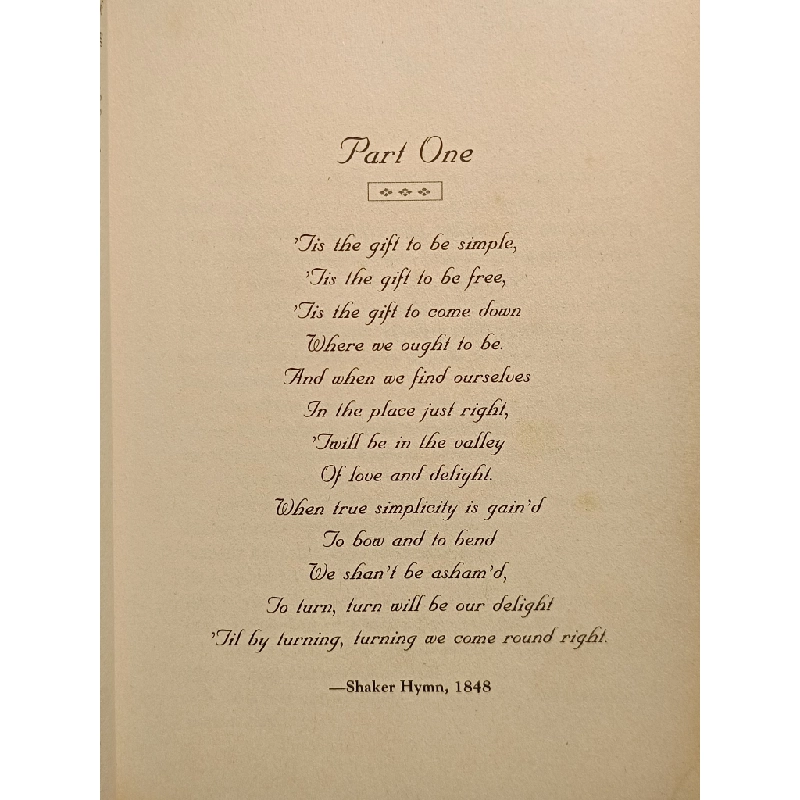 Part One
'Tis the gift to be simple,
'Tis the gift to be free,
'Tis the gift to come down
Where we ought to be.
And when we find ourselves
In the place just right,
'Twill be in the valley
Of love and delight.
When true simplicity is gain'd
To bow and to bend
We shan't be asham'd,
To turn, turn will be our delight
'Til by turning, turning we come round right.
—Shaker Hymn, 1848